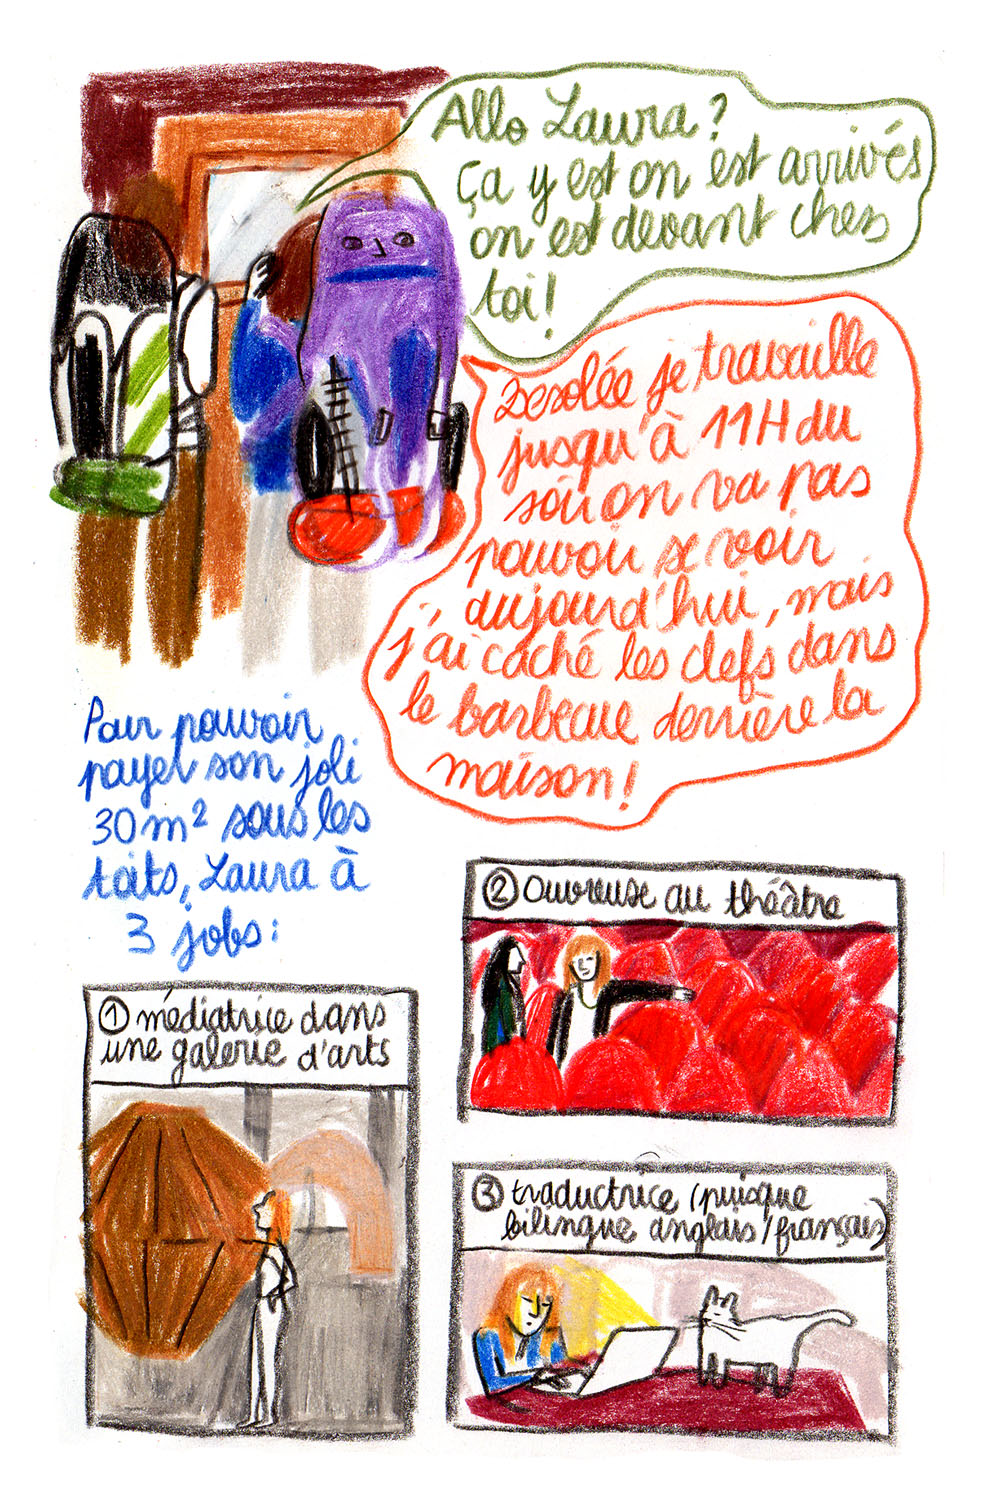 Allo Laura?
Ça y est on est arrivés
on est devant chez
toi!
Desolée je travaille
jusqu'à 11H du
soir on va pas
pouvoir se voir
aujourd'hui, mais
j'ai caché les clefs dans
le barbecue derrière la
maison!
Pour pouvoir
payer son joli
30m² sous les
toits, Laura à
3 jobs:
① médiatrice dans
une galerie d'arts
② Ouvreuse au théâtre
③ traductrice (puisque
bilingue anglais/français)